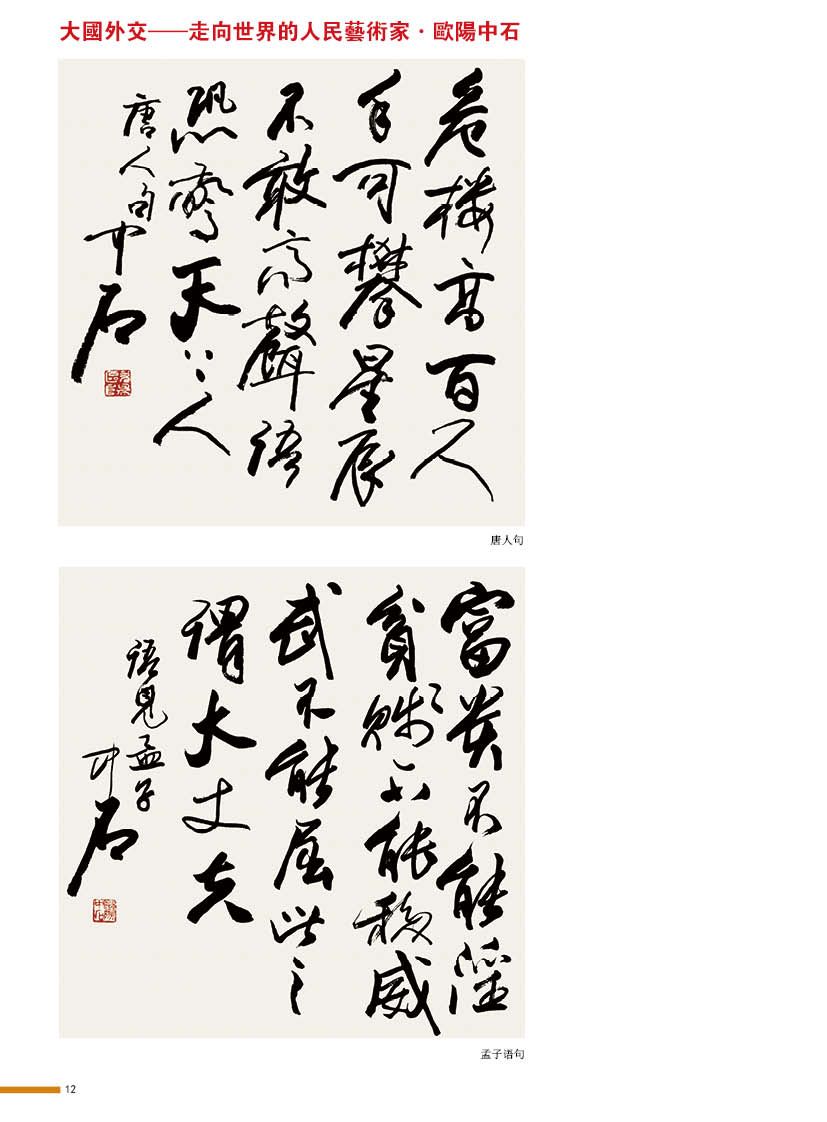 大國外交——走向世界的人民藝術家·歐陽中石
危楼高百尺
手可攀星辰
不敢高聲語
恐驚天上人
唐人句
中石
唐人句
富貴不能淫
貧賤不能移威
武不能屈此之
謂大丈夫
語見孟子
中石
孟子语句
12